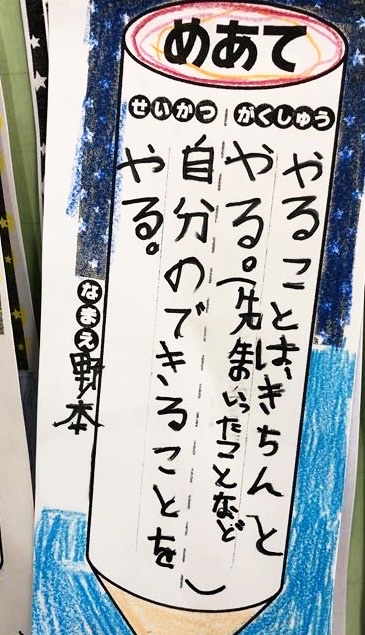 めあて
がくしゅう
やることは、きちんと
やる。(先生いったことなど)
せいかつ
自分のできることを
やる。
なまえ
野本